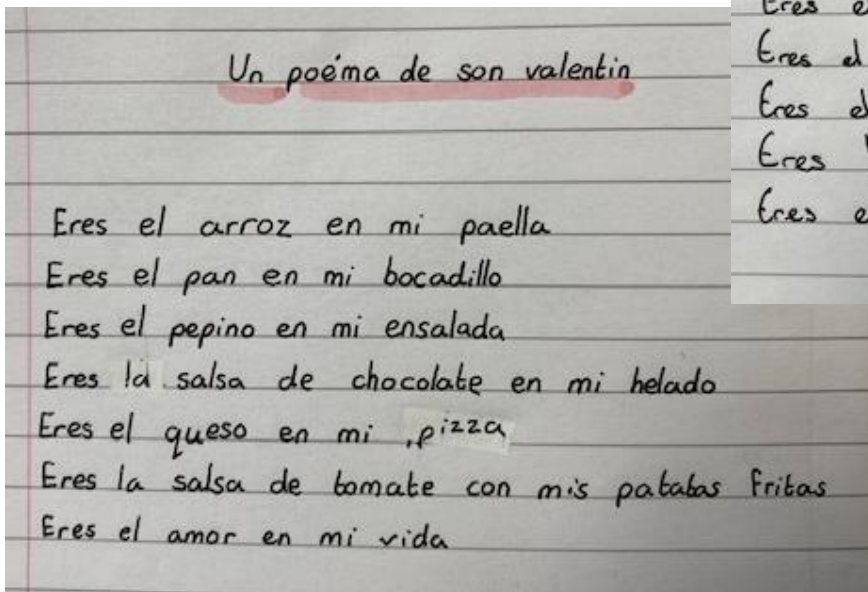 Un poéma de son valentin
Eres el arroz en mi paella
Eres el pan en mi bocadillo
Eres el pepino en mi ensalada
Eres la salsa de chocolate en mi helado
Eres el queso en mi pizza
Eres la salsa de tomate con mis patatas fritas
Eres el amor en mi vida
Eres
Eres el
Eres
Eres
Eres